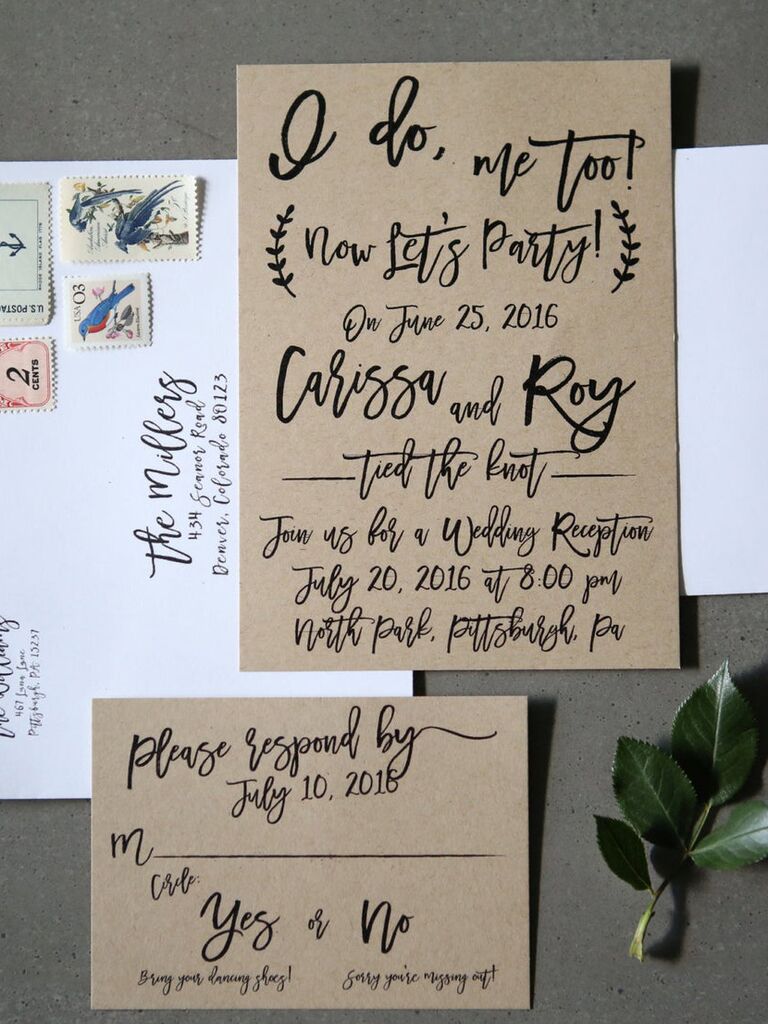 I do, me too!
Now Let's Party!
On June 25, 2016
Carissa and Roy
tied the knot
Join us for a Wedding Reception
July 20, 2016 at 8:00 pm
North Park, Pittsburgh, Pa
Please respond by
July 10, 2016
M
Circle:
Yes or No
Bring your dancing shoes!
Sorry you're missing out!
The Millers
434 Seanor Road
Denver, Colorado 80123
The Williams
467 Luna Lane
Pittsburgh, PA 15237
U.S. POSTA
USA 03
2
CENTS